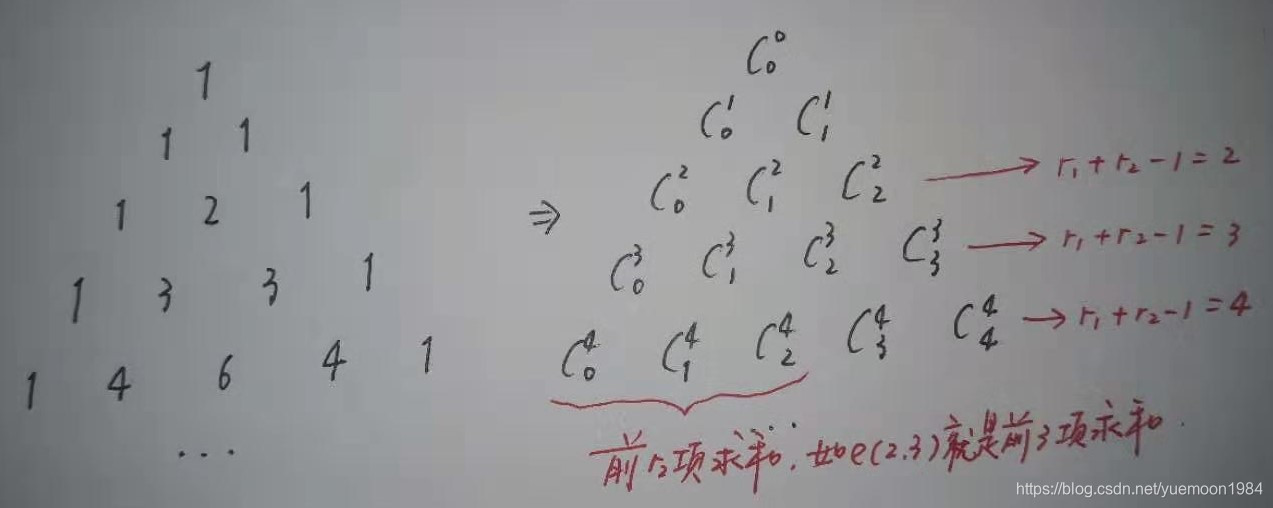 1
1 1
1 2 1
1 3 3 1
1 4 6 4 1
...
⇒
C₀⁰
C₀¹ C₁¹
C₀² C₁² C₂² → r₁+r₂-1=2
C₀³ C₁³ C₂³ C₃³ → r₁+r₂-1=3
C₀⁴ C₁⁴ C₂⁴ C₃⁴ C₄⁴ → r₁+r₂-1=4
前r₂项求和, 如e(2.3)就是前3项求和.
https://blog.csdn.net/yuemoon1984